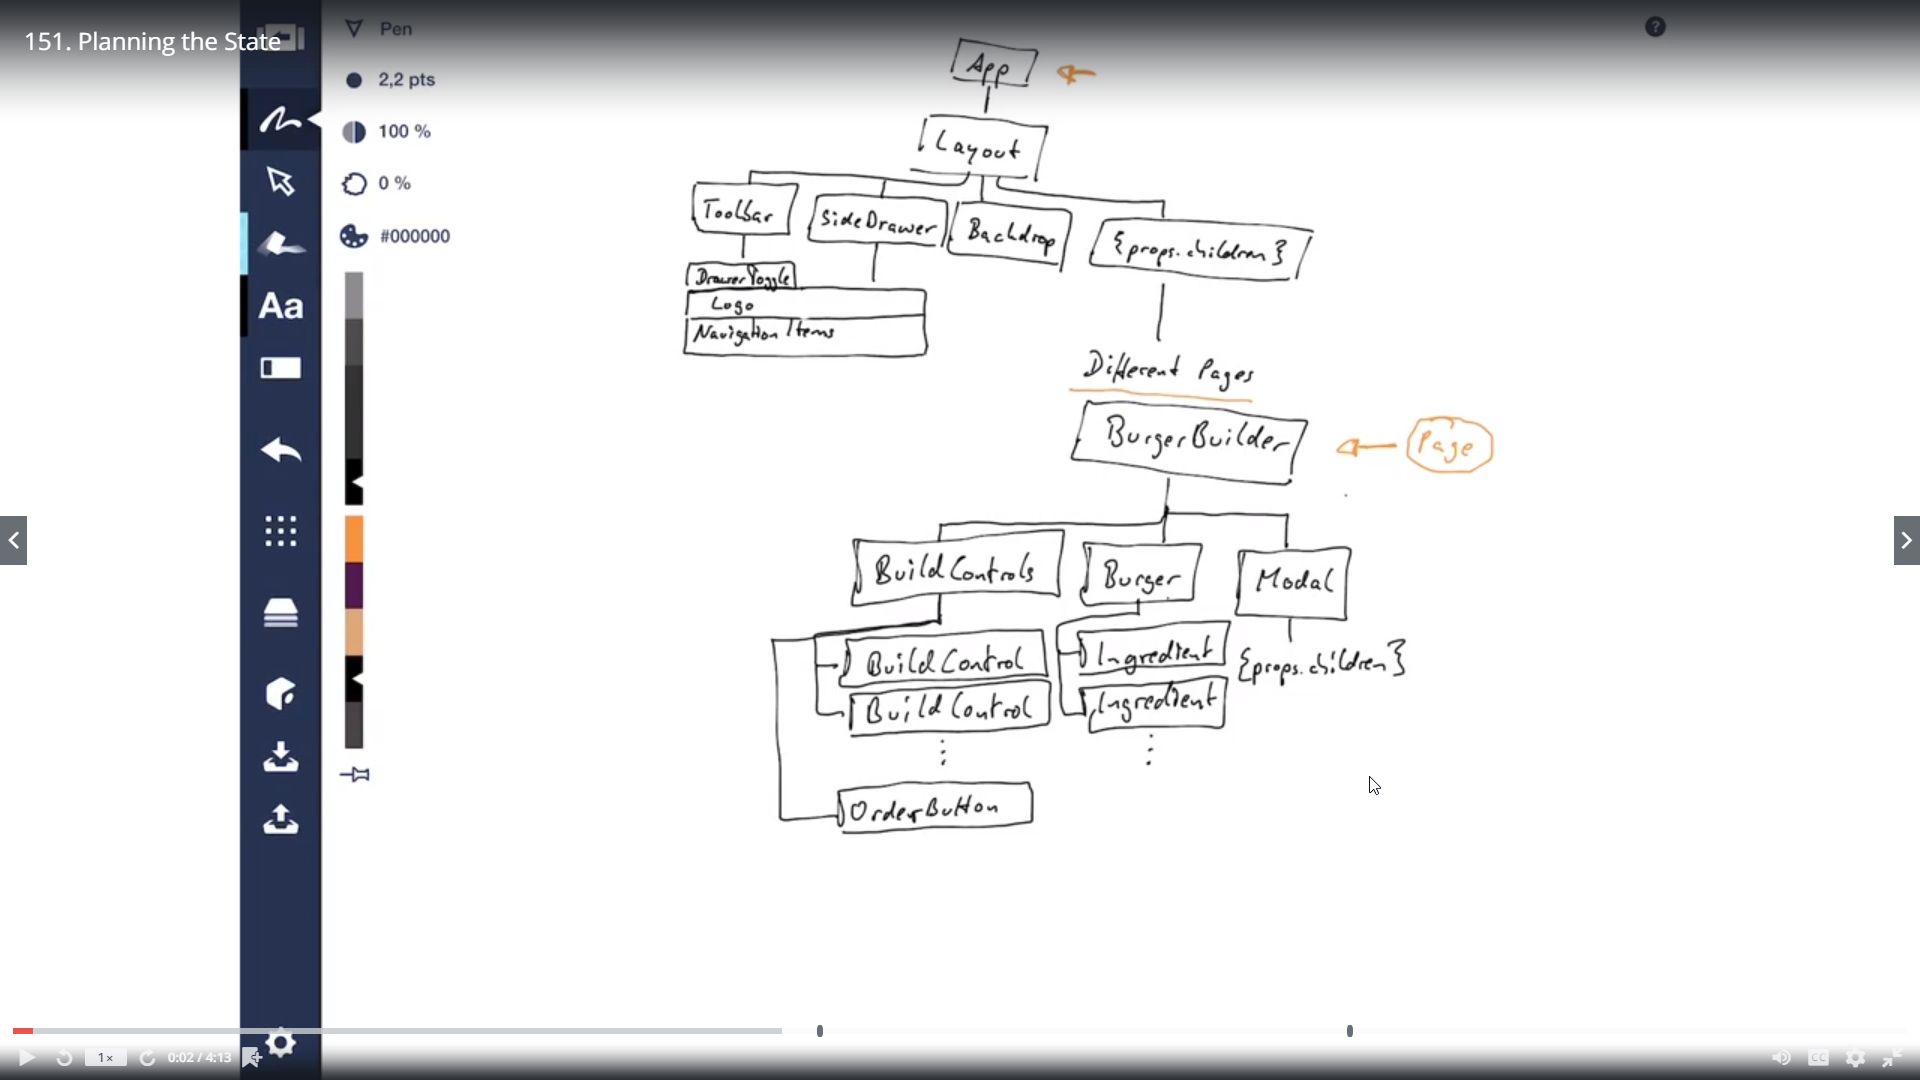 151. Planning the State
Pen
2,2 pts
100 %
0 %
#000000
Aa
?
App
Layout
Toolbar
SideDrawer
Backdrop
{props.children}
DrawerToggle
Logo
Navigation Items
Different Pages
BurgerBuilder
Page
BuildControls
Burger
Modal
BuildControl
Ingredient
{props.children}
BuildControl
Ingredient
OrderButton
1×
0:02 / 4:13
CC